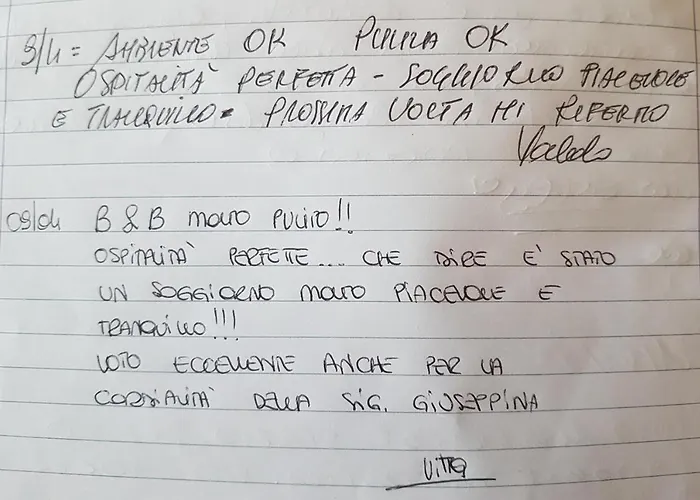 9/4 = AMBIENTE OK PULIZIA OK
OSPITALITÀ PERFETTA - SOGGIORNO PIACEVOLE
E TRANQUILLO - PROSSIMA VOLTA MI RIFERMO
09/04 B & B MOLTO PULITO!!
OSPITALITÀ PERFETTE... CHE DIRE È STATO
UN SOGGIORNO MOLTO PIACEVOLE E
TRANQUILLO!!!
VOTO ECCELLENTE ANCHE PER LA
CORDIALITÀ DELLA SIG. GIUSEPPINA